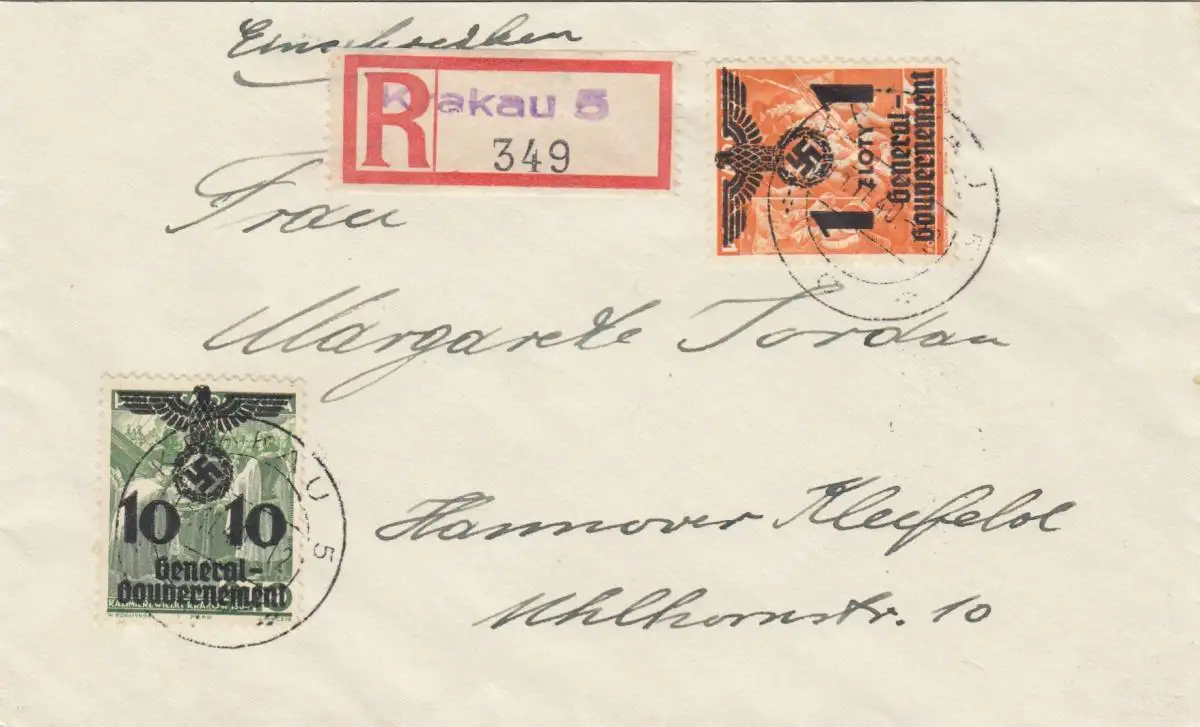 Einschreiben
R Krakau 5
349
1 ZŁOTY 1
General-
Gouvernement
Frau
Margarete Jordan
10 10
General-
Gouvernement
KAZIMIERZ WIELKI KRAKÓW
Hannover Kleefeld
Uhlhornstr. 10